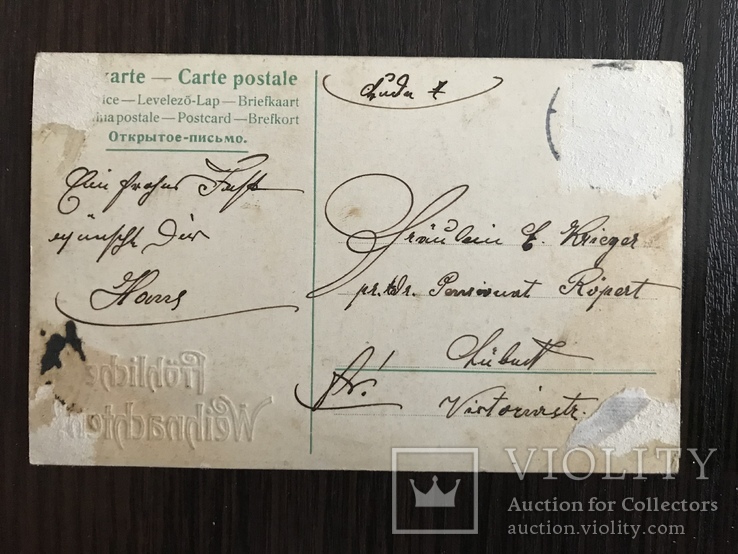 karte — Carte postale
ice — Levelező-Lap — Briefkaart
na postale — Postcard — Brefkort
Открытое-письмо.
Ein frohes Fest
wünscht Dir
Hans
Fräulein E. Krieger
pr. Adr. Pensionat Röpert
Lübeck
fr!
Victoriastr.
Fröhliche
Weihnachten
VIOLITY
Auction for Collectors
auction.violity.com